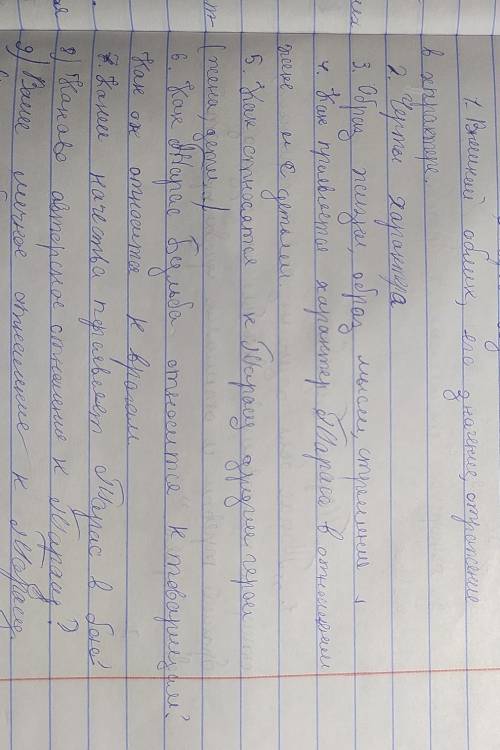 1. Внешной облик, его значение, отражение
в характере.
2. Черты характера
3. Образ жизни, образ мысли, стремление
4. Как проявляется характер Тараса в отношении
жене и с детьми
5. Как относятся к Тарасу другие герои
(жена, дети...)
6. Как Тарас Бульба относится к товарищам?
Как он относится к врагам
7. Какие качества проявляет Тарас в бою
8) Каково авторское отношение к Тарасу?
9) Ваше личное отношение к Тарасу.